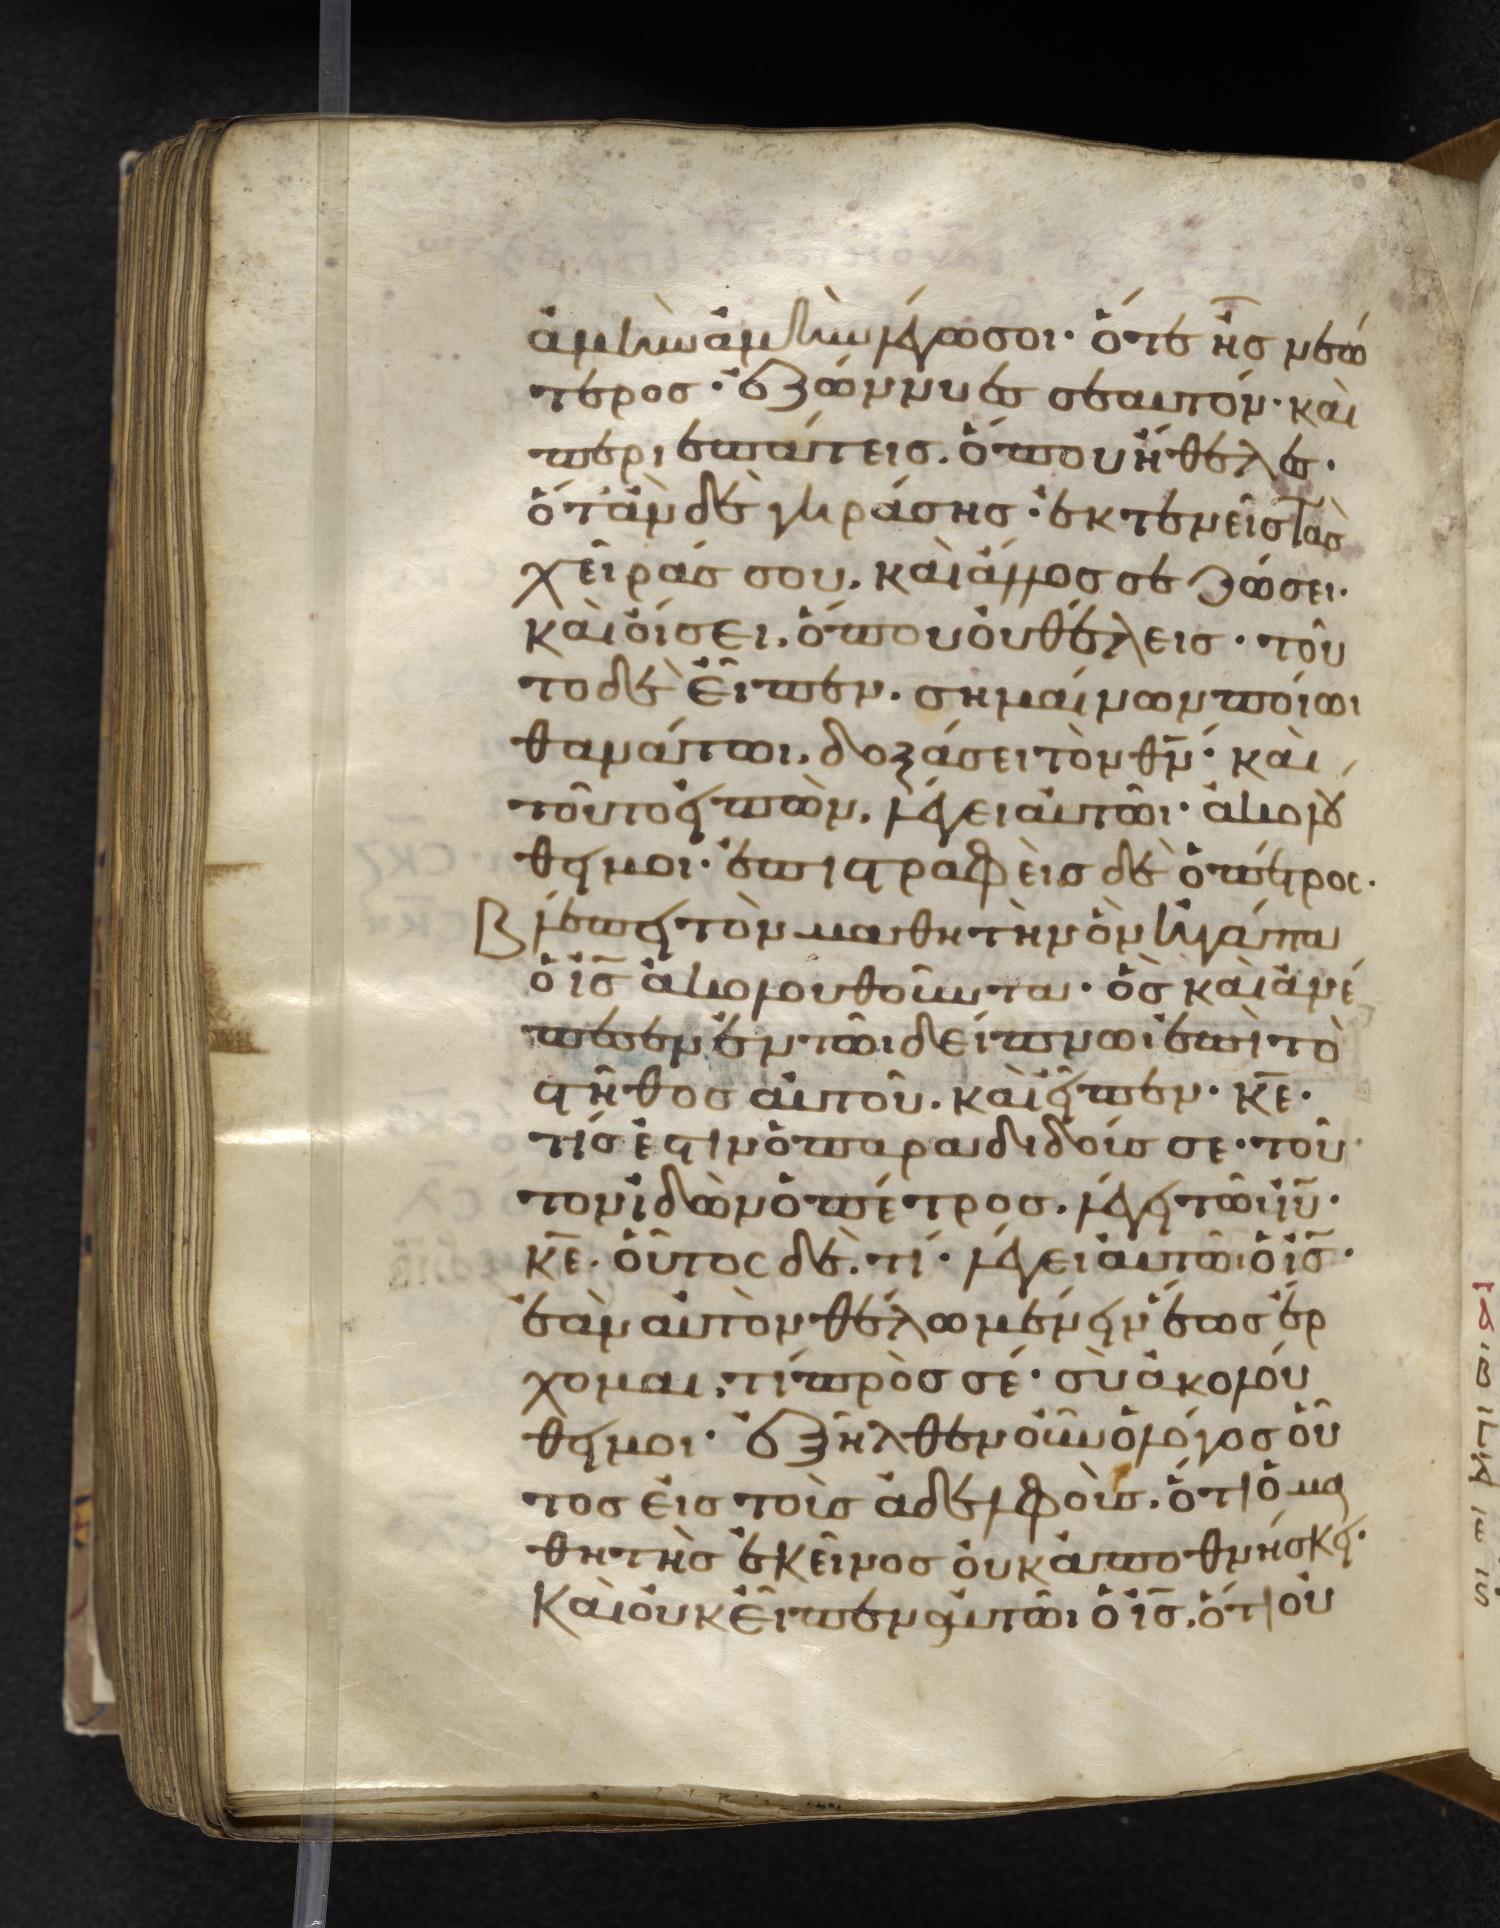 ἀμὴν ἀμὴν λέγω σοι· ὅτε ἦς νεώ
τερος· ἐζώννυες σεαυτόν· καὶ
περιεπάτεις. ὅπου ἤθελες·
ὅτἀν δὲ γηράσης· ἐκτενεῖς τὰσ
χεῖράς σου. καὶ ἄλλος σε ζώσει·
καὶ οἴσει. ὅπου οὐ θέλεις· τοῦ
το δὲ εἶπεν. σημαίνων ποίωι
θανάτωι. δοξάσει τὸν θν̄· καὶ
τοῦτο εἰπὼν. λέγει αὐτῶι· ἀκολού
θει μοι· ἐπιστραφεὶς δὲ ὁ πέτρος.
Βλέπει τὸν μαθητὴν ὃν ἠγάπα
ὁ ἰς̄ ἀκολουθοῦντα· ὃς καὶ ἀνέ
πεσεν ἐν τῶι δείπνωι ἐπὶ τὸ
στῆθος αὐτοῦ. καὶ εἶπεν· κε̄.
τίς ἐστιν ὁ παραδιδούς σε· τοῦ
τον ἰδὼν ὁ πέτρος. λέγει τῶι ιῡ·
κε̄. οὗτος δὲ. τί· λέγει αὐτῶι ὁ ἰς̄·
ἐὰν αὐτὸν θέλω μένειν ἕως ἔρ
χομαι. τί πρὸς σέ· σὺ ἀκολού
θει μοι· ἐξῆλθεν οὖν ὁ λόγος οὗ
τος εἰς τοὺς ἀδελφοὺς. ὅτι ὁ μα
θητὴς ἐκεῖνος οὐκ ἀποθνήσκει·
Καὶ οὐκ εἶπεν αὐτῶι ὁ ἰς̄. ὅτι οὐ